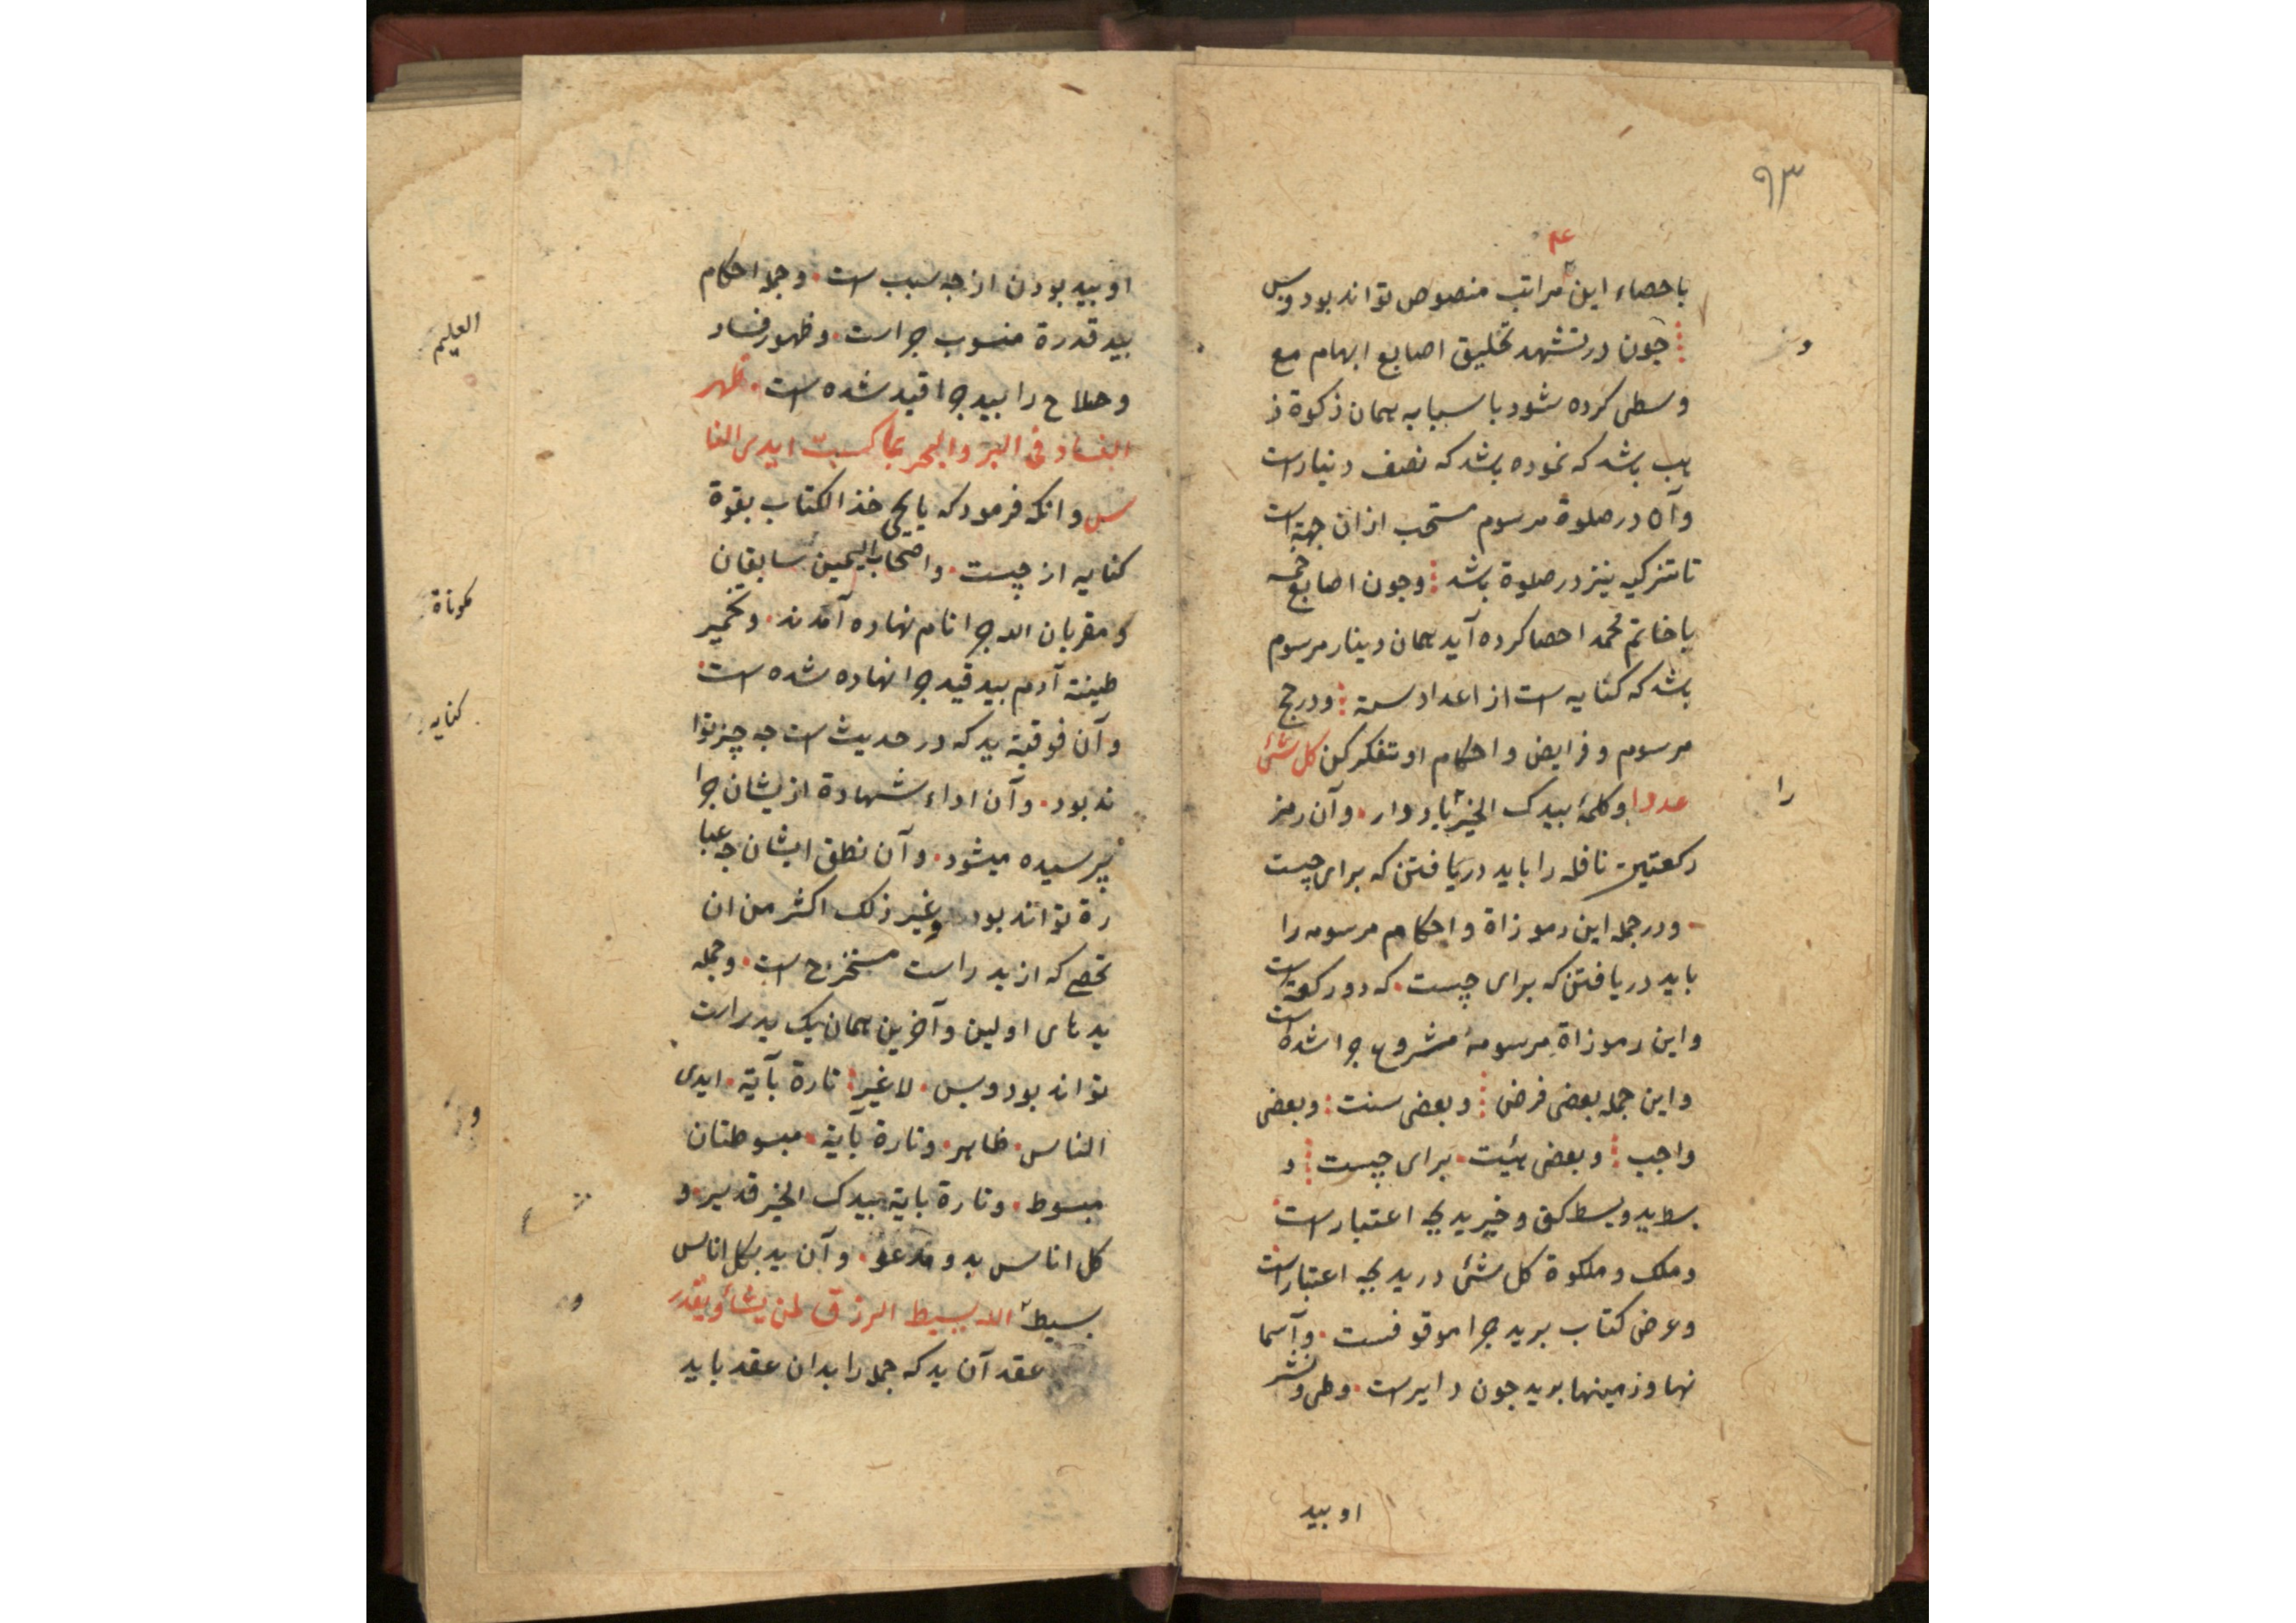 ۹۳
۴۰
باحصاء این مراتب منصوص تواند بود وبس
جون در تشهد تحلیق اصابع ابهام مع
وسطی کرده شود با سبابه همان زکوة ذ
هب باشد که نموده باشد که نصف دینار است
وآن در صلوة مرسوم مستحب ازان جهة است
تا تزکیه نیز در صلوة باشد وجون اصابع خمسه
با خاتم محمد احصا کرده آید همان دینار مرسوم
باشد که کنایه است از اعداد سته ودر حج
مرسوم و فرایض و احکام او تفکر کن کل شئ
عددا وکلمۀ بیدک الخیر یاد دار وآن رمز
رکعتین نافله را باید دریافتن که برای چیست
ودر جمله این رموزاة و احکام مرسومه را
باید دریافتن که برای چیست که دو رکعة است
واین رموزاة مرسومۀ مشروع جرا شده است
واین جمله بعضی فرض وبعضی سنت وبعضی
واجب وبعضی هیئت برای چیست و
بسط ید وبسط کف و خیر ید بجه اعتبار است
وملک وملکوة کل شئ در ید بجه اعتبار است
وعرض کتاب برید جرا موقوفست وآسما
نها وزمینها برید جون دایر است وطی ونشر
او بید
او بید بودن از جه سبب است وجمله احکام
بید قدرة منسوب جراست وظهور فساد
وصلاح را بید جرا قید شده است ظهر
الفساد فی البر والبحر بما کسبت ایدی النا
س وانکه فرمود که یا یحیی خذ الکتاب بقوة
کنایه از چیست واصحاب الیمین سابقان
ومقربان الله جرا نام نهاده آمدند وتخمیر
طینة آدم بید قید جرا نهاده شده است
وآن فوقیة ید که در حدیث است جه چیز توا
ند بود وآن اداء شهادة ازیشان جرا
پرسیده میشود وآن نطق ایشان جه عبا
رة تواند بود وغیر ذلک اکثر من ان
تحصی که از ید راست مستخرج است وجمله
ید های اولین وآخرین همان یک ید راست
تواند بود وبس لا غیر تارة بآیة ایدی
الناس ظاهر وتارة بآیة مبسوطتان
مبسوط وتارة بایة بیدک الخیر قدیر و
کل اناس بدو مدعو وآن ید بکل اناس
بسیط الله یبسط الرزق لمن یشاء ویقدر
عقد آن ید که جمله را بدان عقد باید
و
را
العلیم
کنایه
و